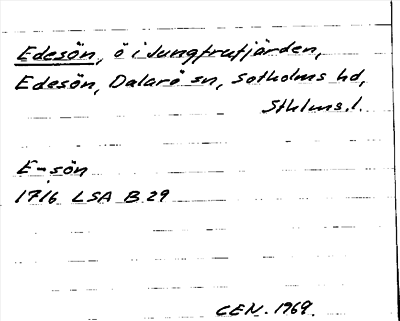 Edesön, ö i Jungfrufjärden,
Edesön, Dalarö sn, Sotholms hd,
Sthlms. l.
E-sön
1716 LSA B 29
CEN. 1969.